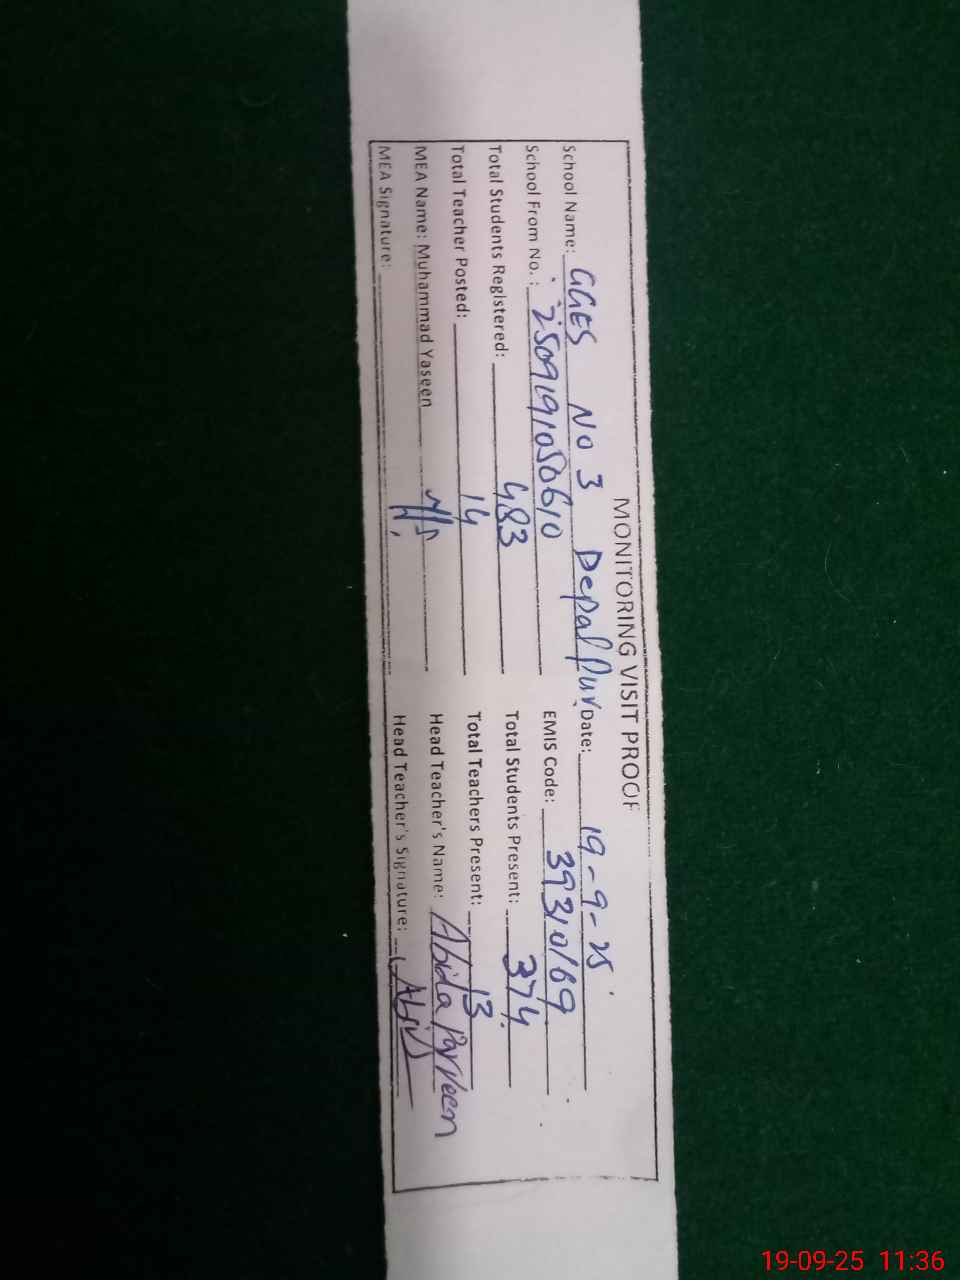 MONITORING VISIT PROOF
School Name: GGES NO 3 Depalpur Date: 19-9-25
School From No.: 2509191050610 EMIS Code: 39310169
Total Students Registered: 483 Total Students Present: 374
Total Teacher Posted: 14 Total Teachers Present: 13
MEA Name: Muhammad Yaseen Head Teacher's Name: Abida Parveen
MEA Signature: Head Teacher's Signature:
19-09-25 11:36